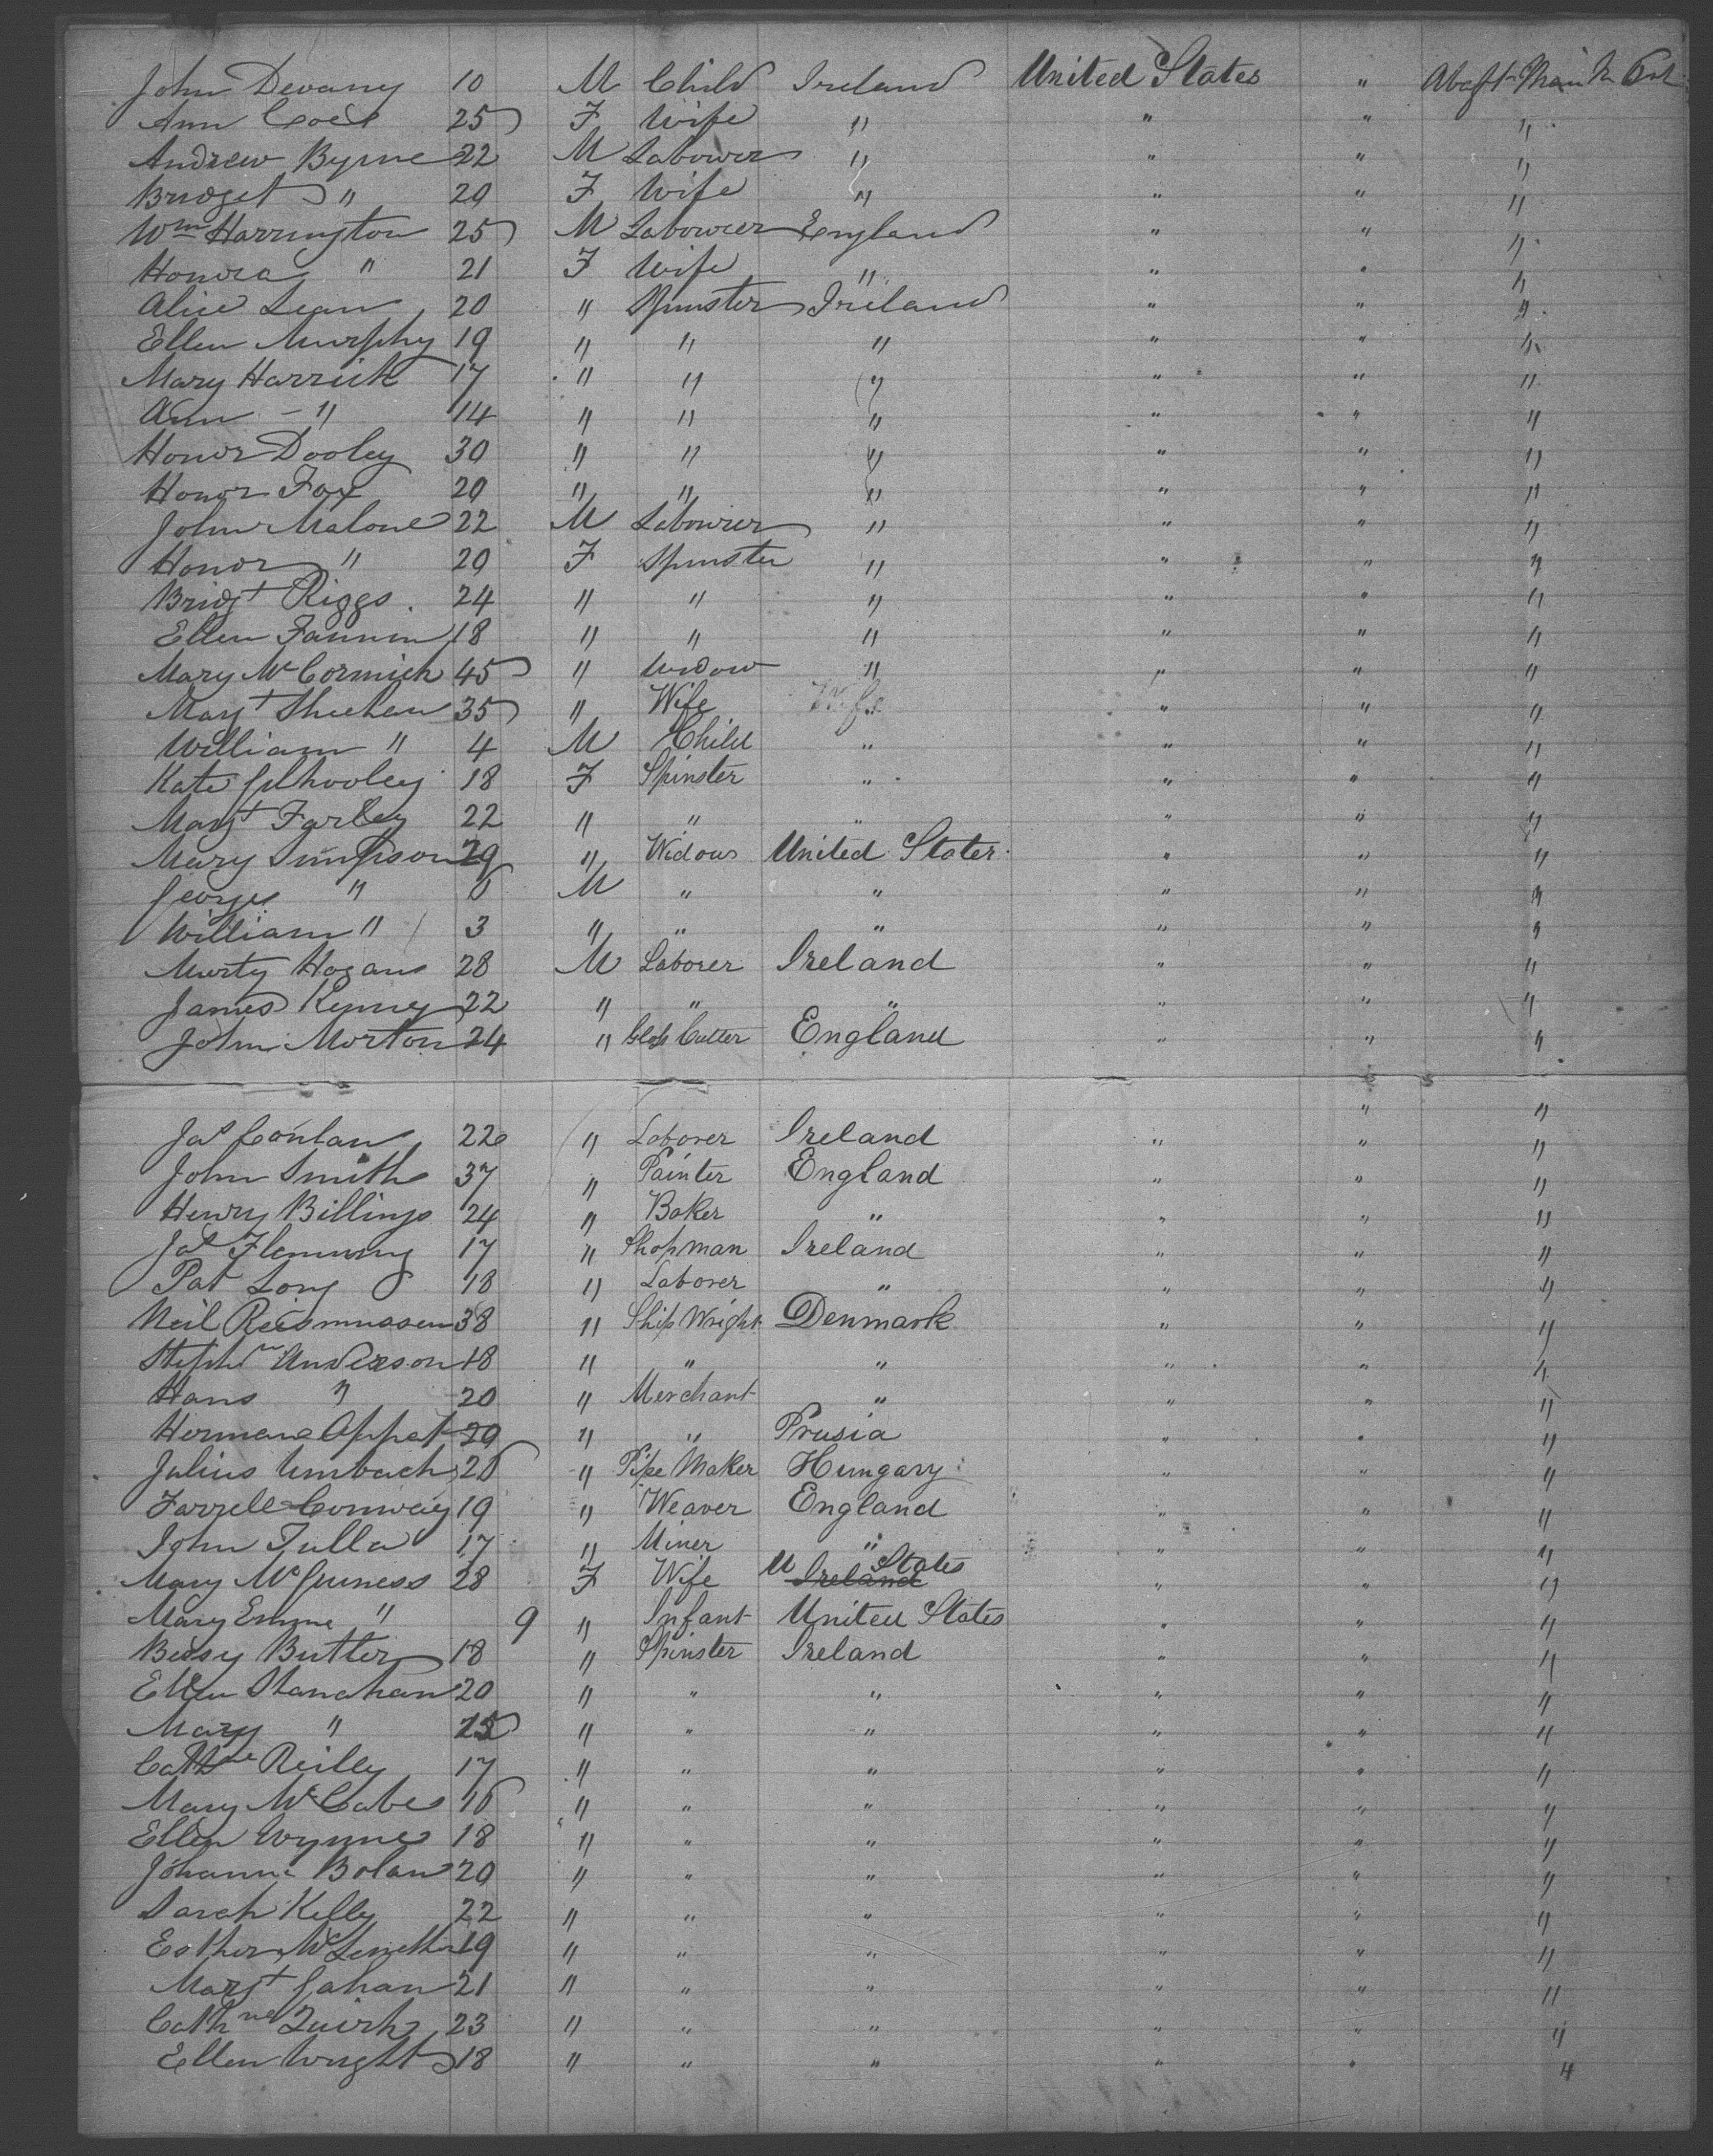 John Devany 10 M Child Ireland United States " Abaft Main
Ann 25 F Wife " " " "
Andrew Byrne 22 M Labourer " " " "
Bridget " 20 F Wife " " " "
Wm Harrington 25 M Labourer England " " "
Honora " 21 F Wife " " " "
Alice Lean 20 " Spinster Ireland " " "
Ellen Murphy 19 " " " " " "
Mary Harrick 17 " " " " " "
Ann " 14 " " " " " "
Honor Dooley 30 " " " " " "
Honor Fox 20 " " " " " "
John Malone 22 M Labourer " " " "
Honor " 20 F Spinster " " " "
Bridgt Riggs 24 " " " " " "
Ellen 18 " " " " " "
Mary McCormick 45 " Widow " " " "
Margt Sheehan 35 " Wife " " "
William " 4 M Child " " " "
Kate Gilhooley 18 F Spinster " " " "
Margt Farley 22 " " " " " "
Mary Simpson 29 " Widow United States " " "
George " 6 M " " " " "
William " 3 " " " " " "
Murty Hogan 28 M Laborer Ireland " " "
James Kenny 22 " " " " " "
John Morton 24 " Glass Cutter England " " "
" "
Jas Conlan 22 " Laborer Ireland " " "
John Smith 37 " Painter England " " "
Henry Billings 24 " Baker " " " "
Jas Flemming 17 " Shopman Ireland " " "
Pat Long 18 " Laborer " " " "
Neil Rasmussen 38 " Ship Wright Denmark " " "
Stephn Anderson 18 " " " " " "
Hans " 20 " Merchant " " " "
Herman Appet 29 " " Prusia " " "
Julius Umbach 26 " Pipe Maker Hungary " " "
Farrell Conway 19 " Weaver England " " "
John Tulla 17 " Miner " " " "
Mary McGuiness 28 F Wife U States Ireland " " "
Mary Emma " 9 " Infant United States " " "
Bessy Butler 18 " Spinster Ireland " " "
Ellen Shanahan 20 " " " " " "
Mary " 25 " " " " " "
Cathne Reilly 17 " " " " " "
Mary McCabe 16 " " " " " "
Ellen Wynne 18 " " " " " "
Johanna Bolan 20 " " " " " "
Sarah Kelly 22 " " " " " "
Esther 19 " " " " " "
Margt Gahan 21 " " " " " "
Cathne Quirk 23 " " " " " "
Ellen Wright 18 " " " " " "